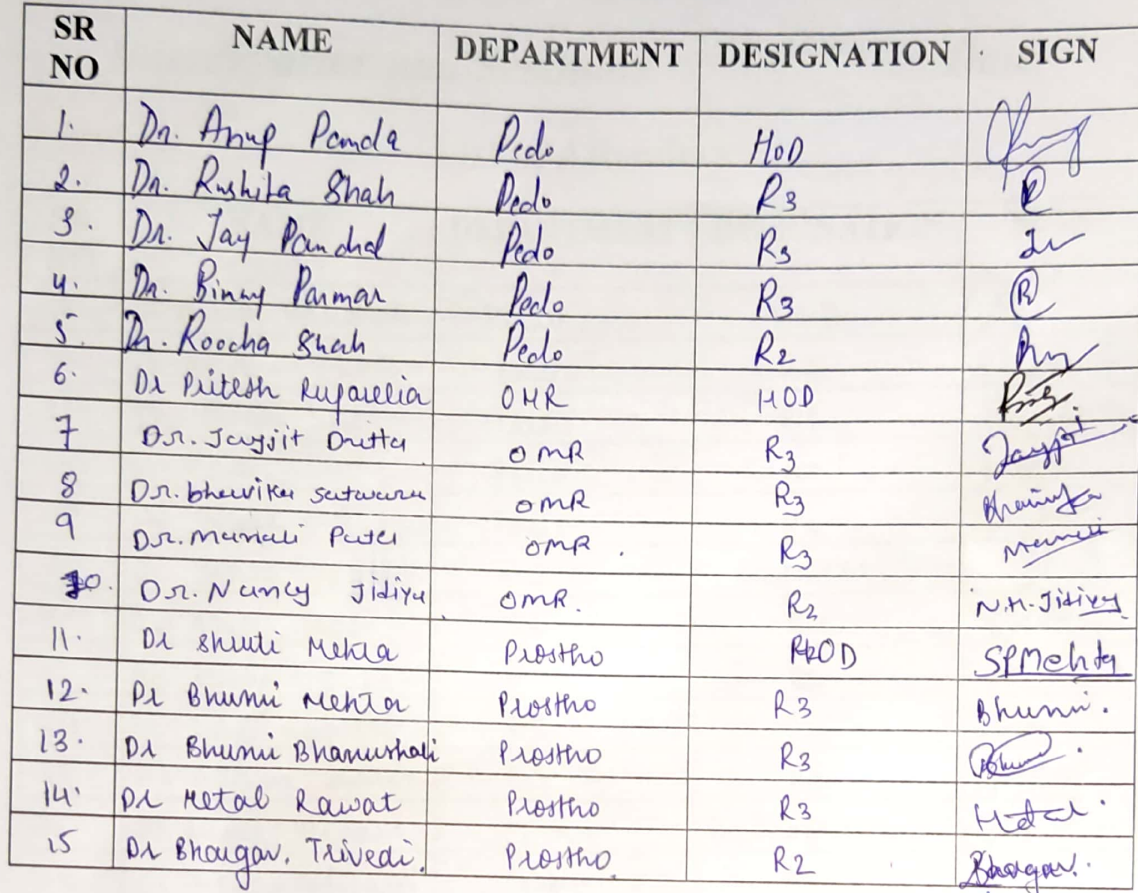 SR NO NAME DEPARTMENT DESIGNATION SIGN
1. Dr. Anup Panda Pedo HOD
2. Dr. Rushita Shah Pedo R3 R
3. Dr. Jay Panchal Pedo R3
4. Dr. Binny Parmar Pedo R3 R
5. Dr. Roocha Shah Pedo R2
6. Dr Pritesh Ruparelia OMR HOD
7 Dr. Jayjit Dutta OMR R3
8 Dr. bhavika sutwara OMR R3 Bhavika
9 Dr. Manali Patel OMR . R3 Manali
10. Dr. Nancy Jidiya OMR. R2 N.H. Jidiya
11. Dr Shruti Mehta Prostho HOD SPMehta
12. Dr Bhumi Mehta Prostho R3 Bhumi.
13. Dr Bhumi Bhanushali Prostho R3
14. Dr Hetal Rawat Prostho R3 Hetal
15 Dr Bhargav. Trivedi. Prostho R2 Bhargav.